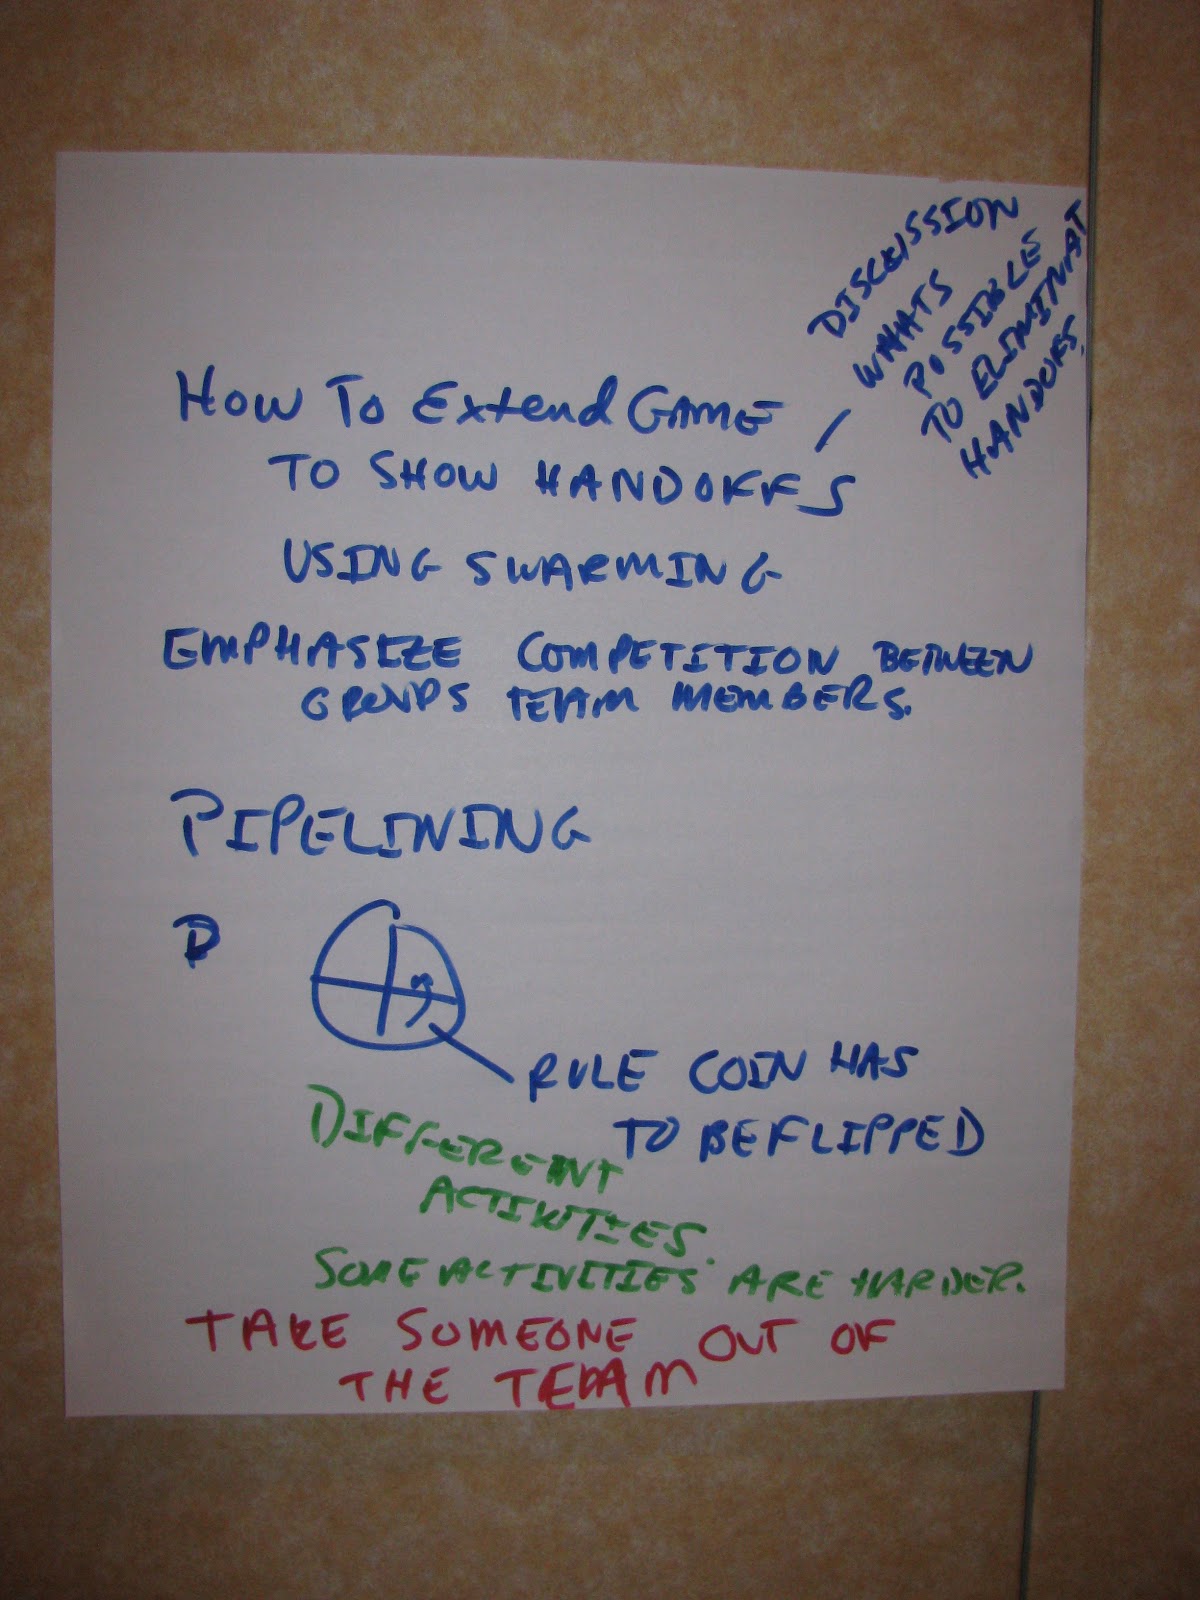 DISCUSSION
WHATS
POSSIBLE
TO ELIMINAT
HANDOFFS.
HOW TO Extend GAME
TO SHOW HANDOFFS
USING SWARMING
EMPHASIZE COMPETITION BETWEEN
GROUPS TEAM MEMBERS.
PIPELINING
D
RULE COIN HAS
TO BE FLIPPED
DIFFERENT
ACTIVITIES.
SOME ACTIVITIES ARE HARDER.
TAKE SOMEONE OUT OF
THE TEAM